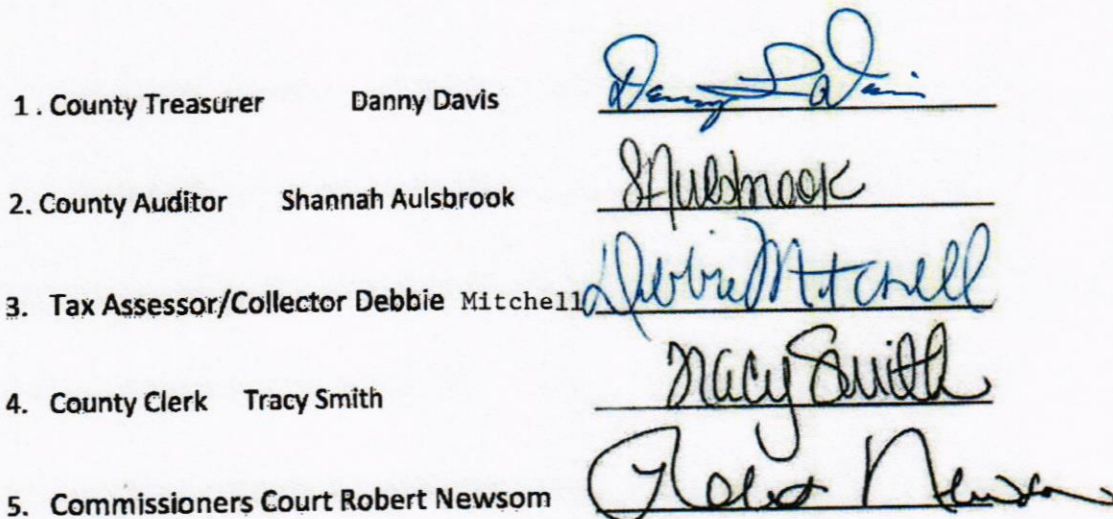 1. County Treasurer Danny Davis Danny L Davis
2. County Auditor Shannah Aulsbrook SAulsbrook
3. Tax Assessor/Collector Debbie Mitchell Debbie Mitchell
4. County Clerk Tracy Smith Tracy Smith
5. Commissioners Court Robert Newsom Robert Newsom